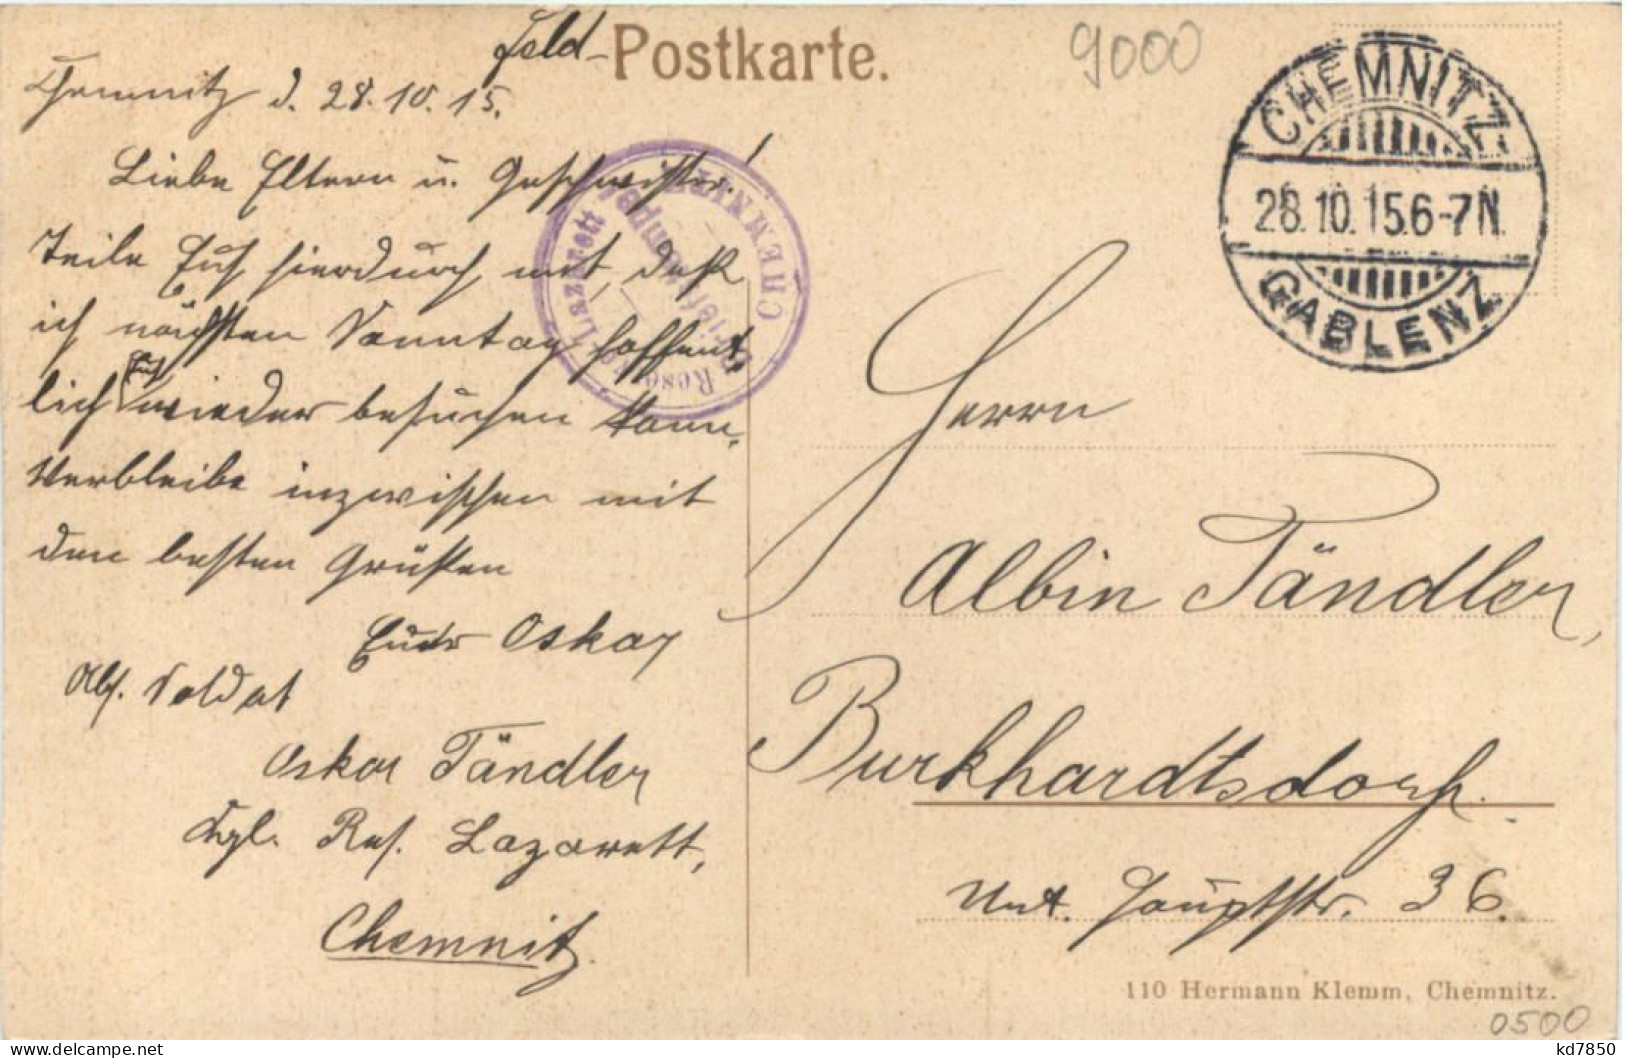 Feld-Postkarte.
9000
Chemnitz d. 28.10.15.
Liebe Eltern u. Geschwister!
Teile Euch hierdurch mit, daß
ich nächsten Sonntag hoffent-
lich Euch wieder besuchen kann.
Verbleibe inzwischen mit
den besten Grüßen
Euer Oskar
Abs. Soldat
Oskar Tändler
Kgl. Res. Lazarett,
Chemnitz.
CHEMNITZ
Lazarett
CHEMNITZ
28.10.15.6-7N.
GABLENZ
Herrn
Albin Tändler,
Burkhardtsdorf.
Unt. Hauptstr. 36.
110 Hermann Klemm, Chemnitz.
0500
kd7850